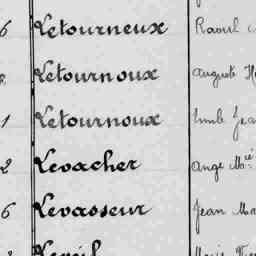 6 Letourneux Raoul
8 Letournoux Auguste
1 Letournoux Jean
2 Levacher Ange Mie
6 Levasseur Jean Ma